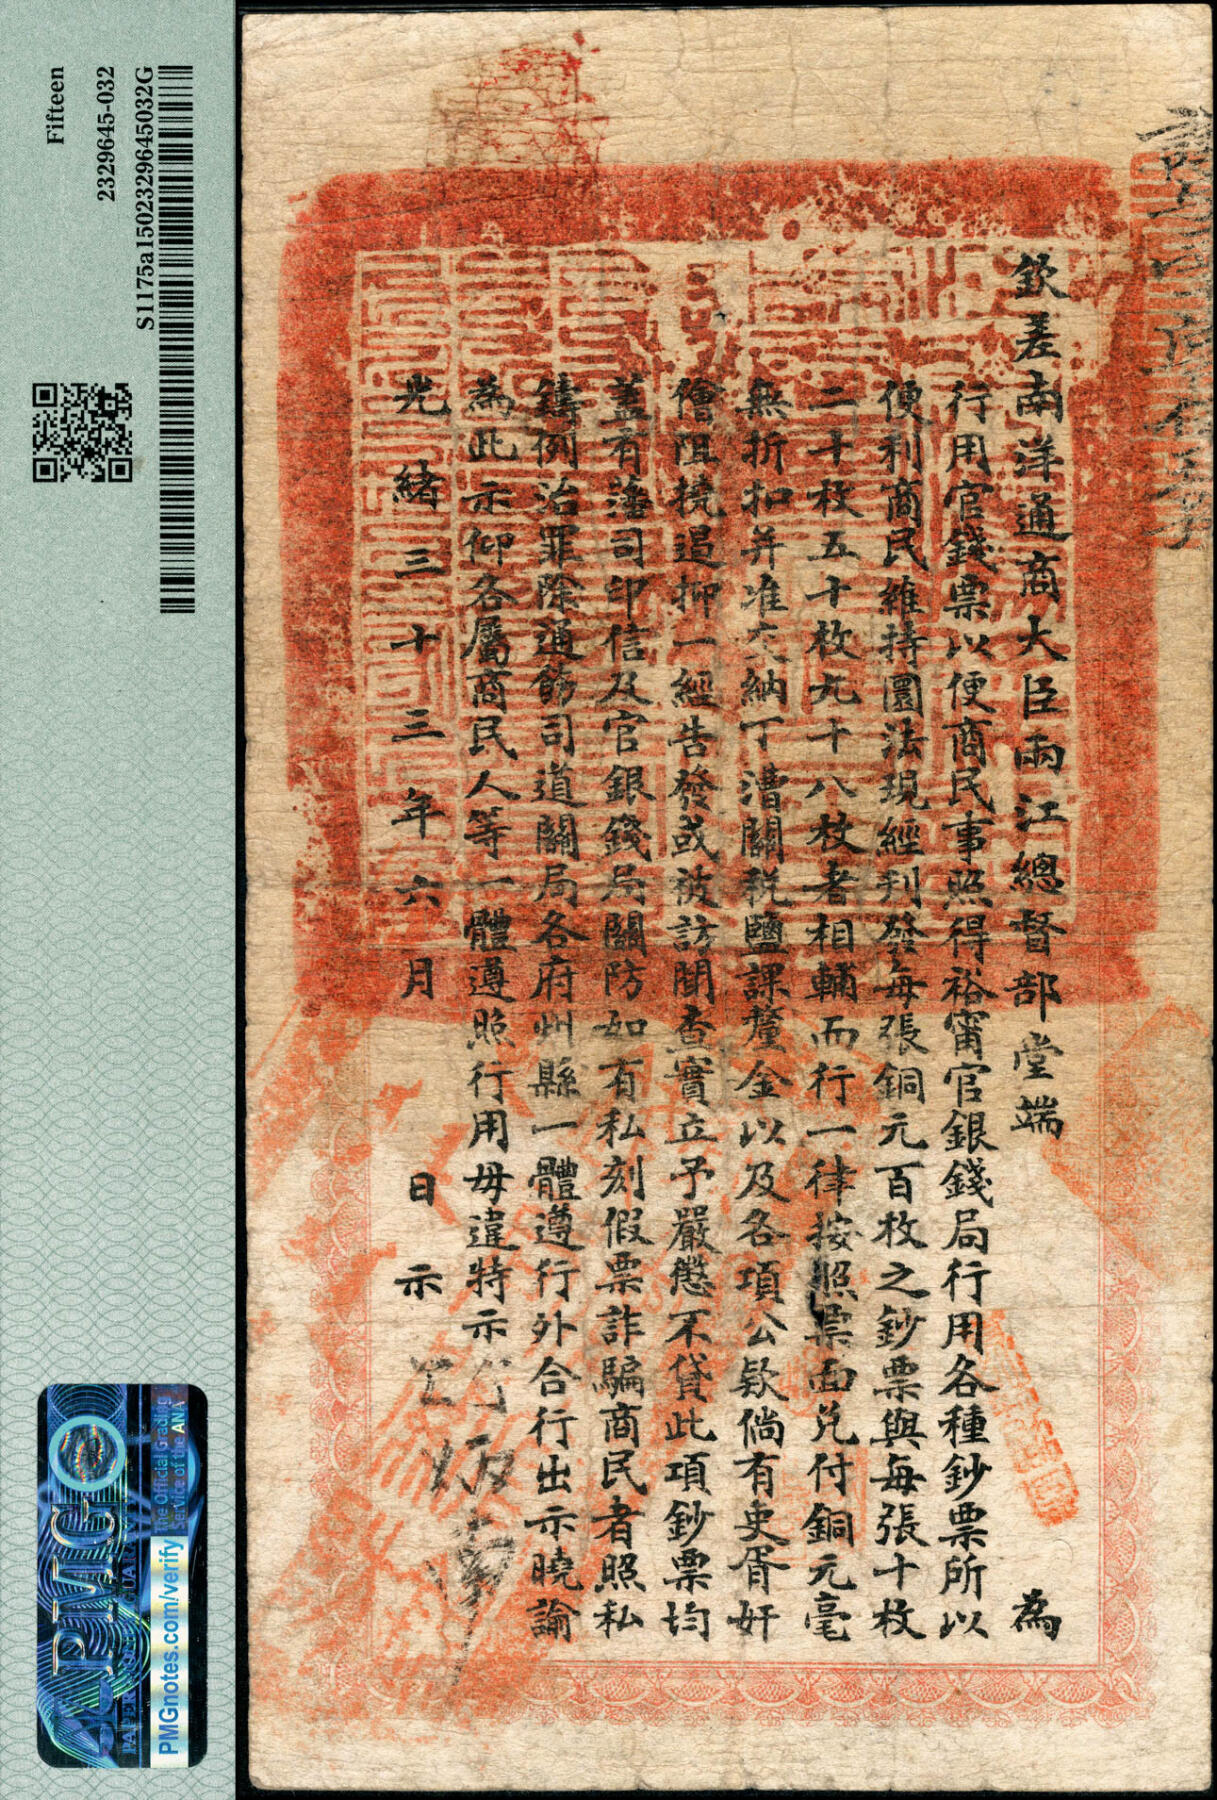 欽差南洋通商大臣兩江總督部堂端　為
行用官錢票以便商民事照得裕甯官銀錢局行用各種鈔票所以
便利商民維持圜法現經刋發每張銅元百枚之鈔票與每張十枚
二十枚五十枚九十八枚者相輔而行一律按照票面兌付銅元毫
無折扣并准交納丁漕關税鹽課釐金以及各項公欵倘有吏胥奸
儈阻撓遏抑一經告發或被訪聞查實立予嚴懲不貸此項鈔票均
蓋有藩司印信及官銀錢局關防如有私刻假票詐騙商民者照私
鑄例治罪除通飭司道關局各府州縣一體遵行外合行出示曉諭
為此示仰各屬商民人等一體遵照行用毋違特示
光緒三十三年六月　日示
Fifteen
2329645-032
S1175a1502329645032G
PMG
The Official Grading Service of the ANA
PMGnotes.com/verify